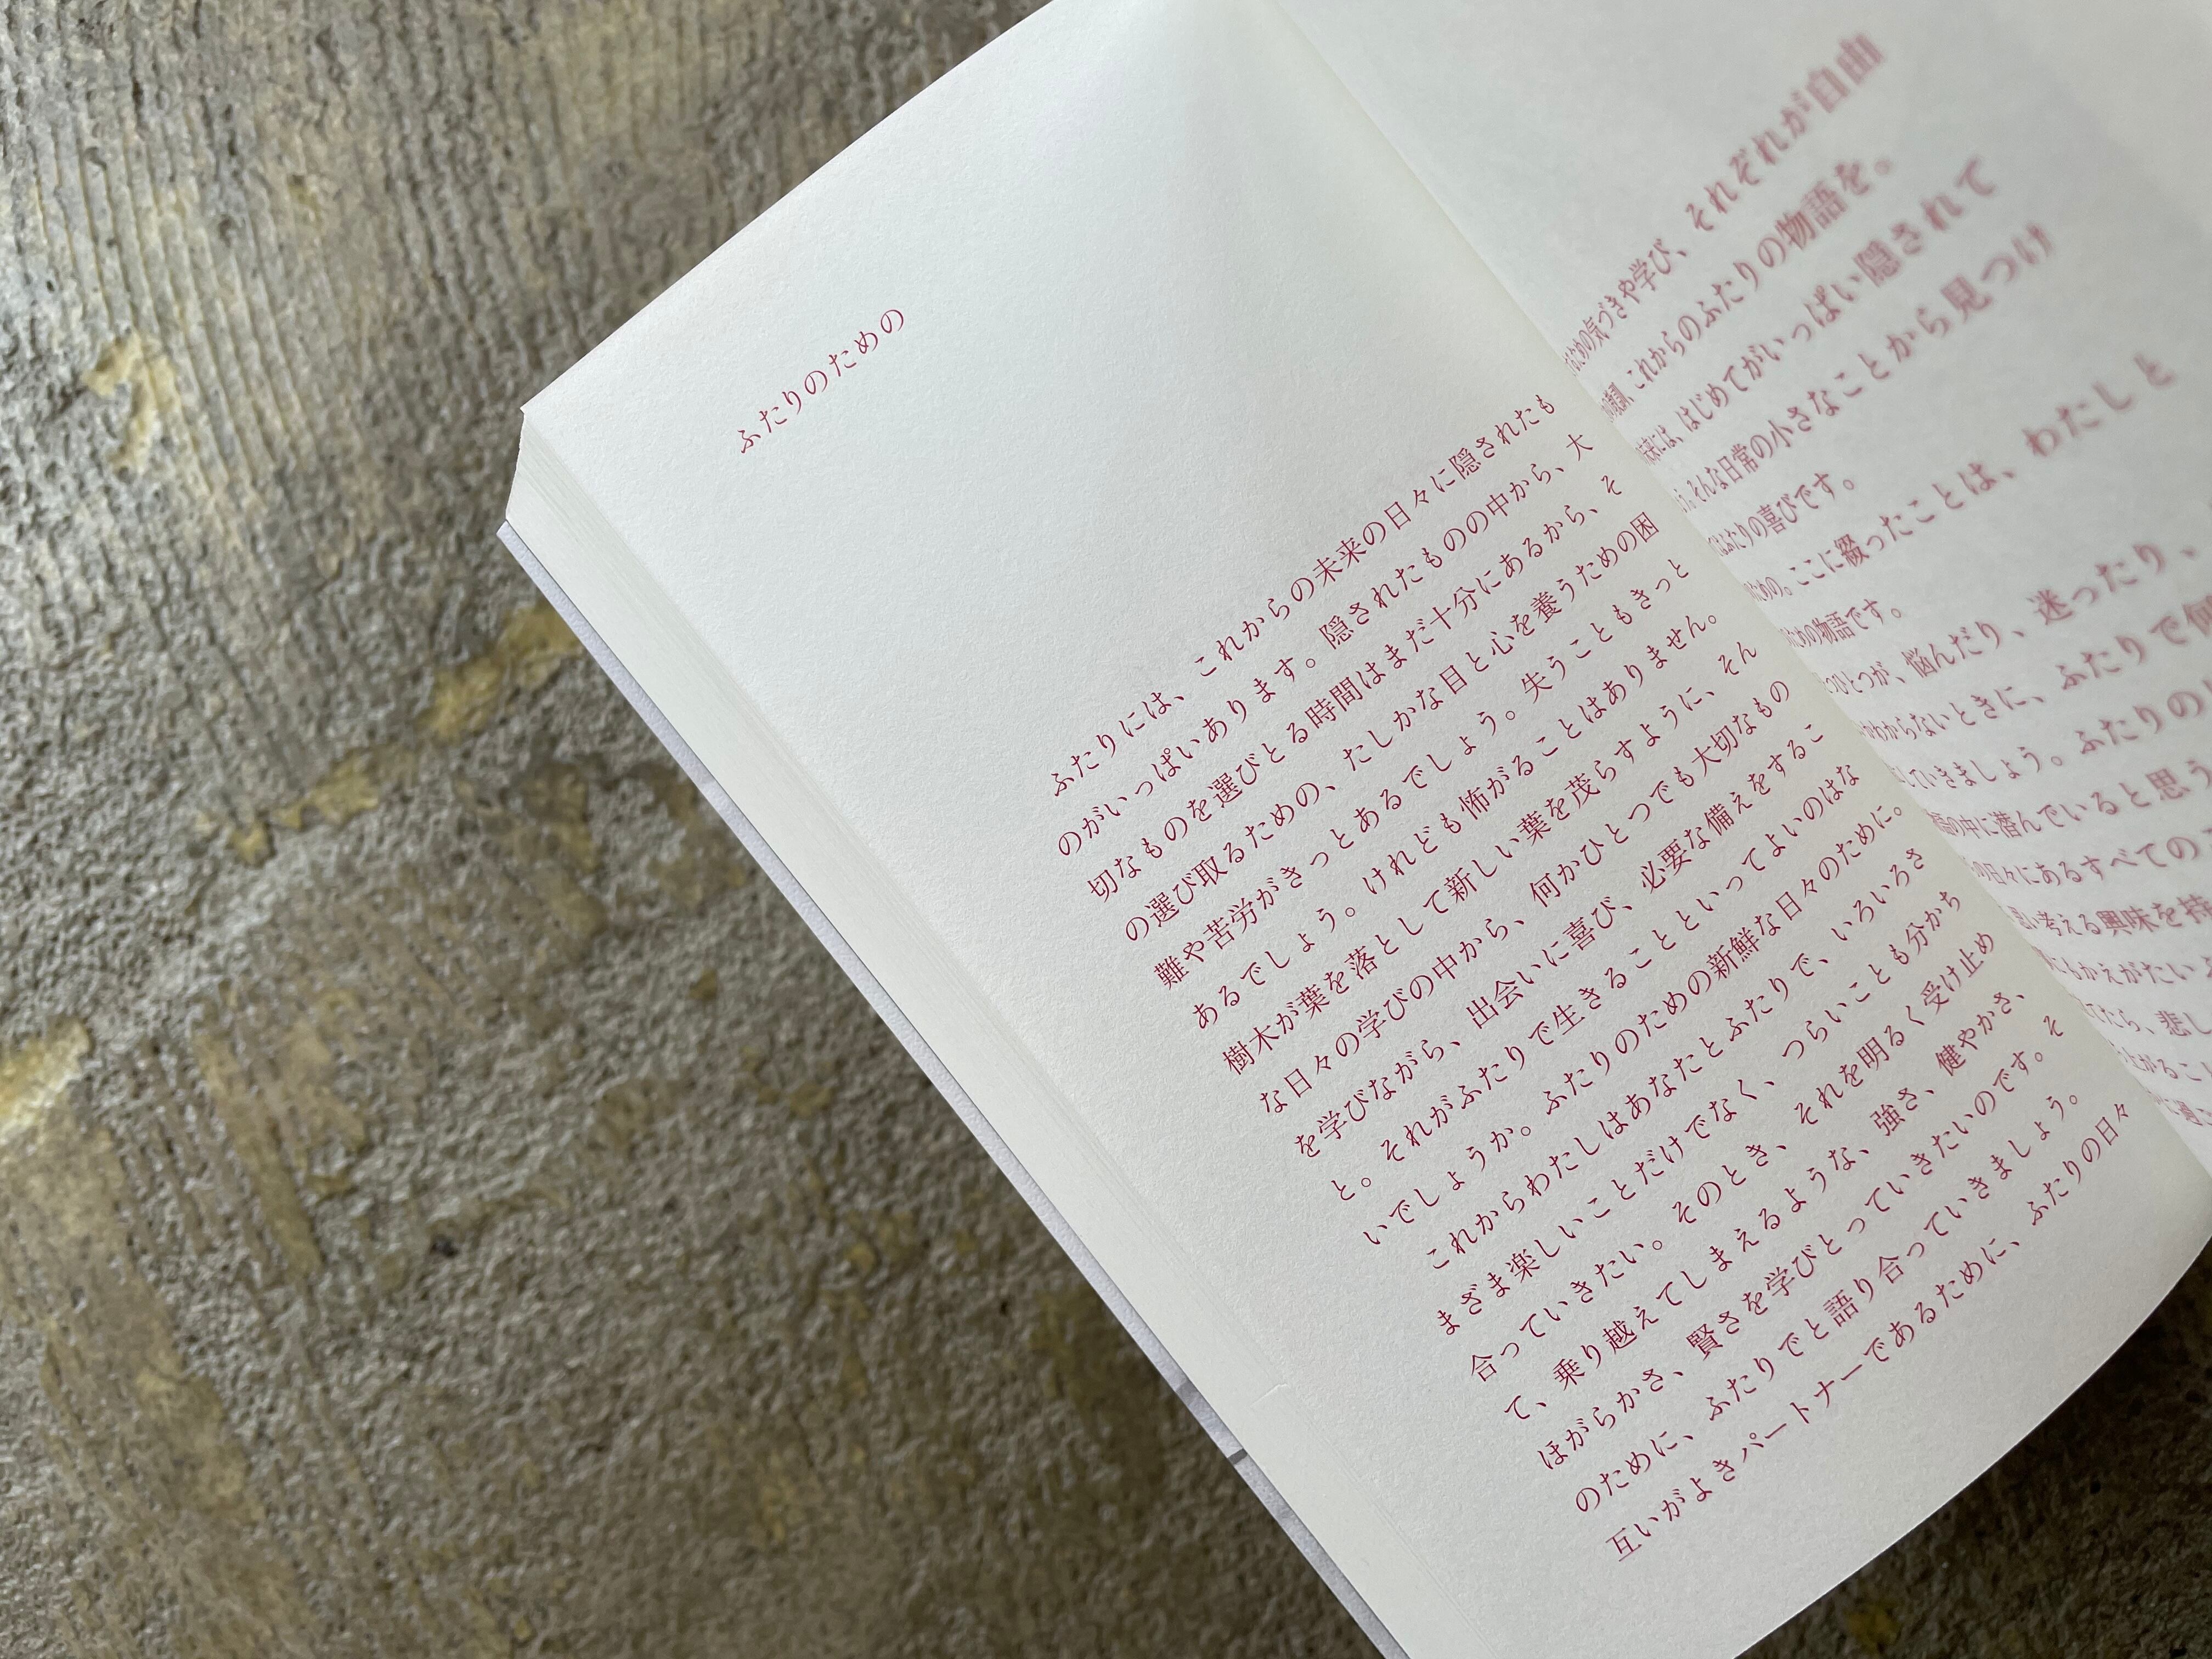 ふたりのための
ふたりには、これからの未来の日々に隠されたも
のがいっぱいあります。隠されたものの中から、大
切なものを選びとる時間はまだ十分にあるから、そ
の選び取るための、たしかな目と心を養うための困
難や苦労がきっとあるでしょう。失うこともきっと
あるでしょう。けれども怖がることはありません。
樹木が葉を落として新しい葉を茂らすように、そん
な日々の学びの中から、何かひとつでも大切なもの
を学びながら、出会いに喜び、必要な備えをするこ
と。それがふたりで生きることといってよいのはな
いでしょうか。ふたりのための新鮮な日々のために。
これからわたしはあなたとふたりで、いろいろさ
まざま楽しいことだけでなく、つらいことも分かち
合っていきたい。そのとき、それを明るく受け止め
て、乗り越えてしまえるような、強さ、健やかさ、
ほがらかさ、賢さを学びとっていきたいのです。そ
のために、ふたりでと語り合っていきましょう。
互いがよきパートナーであるために、ふたりの日々
ための気づきや学び、それぞれが自由
これからのふたりの物語を。
には、はじめてがいっぱい隠されて
そんな日常の小さなことから見つけ
ふたりの喜びです。
ための。ここに綴ったことは、わたしと
ための物語です。
ひとつが、悩んだり、迷ったり、
わからないときに、ふたりで
していきましょう。ふたりの
の中に潜んでいると思う
の日々にあるすべての
考える興味を持
にもかえがたい
たら、悲し